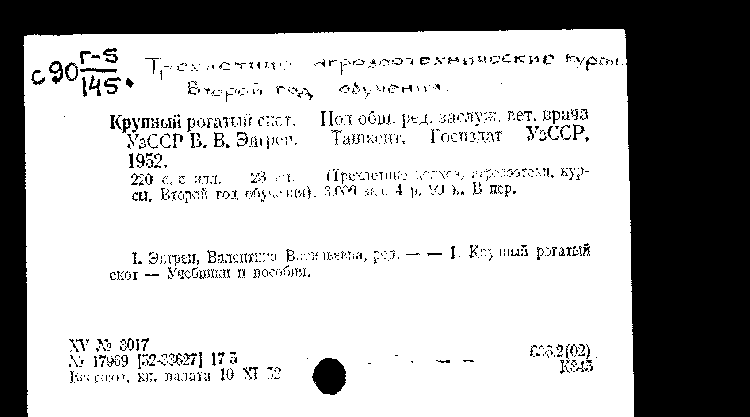 с90 Г-5/145.
Трехлетние агрозоотехнические курсы.
Второй год обучения.
Крупный рогатый скот. Под общ. ред. заслуж. вет. врача
УзССР В. В. Ташкент, Госиздат УзССР,
1952.
220 с. с илл. (Трехлетние агрозоотехн. кур-
сы. Второй год обучения). 4 р. В пер.
I. Валентина Васильевна, ред. — — 1. Крупный рогатый
скот — Учебники и пособия.
XV № 3017
№ 17969 [52-33627] 17 5
кн. палата 10 XI 52
636.2(02)
К845